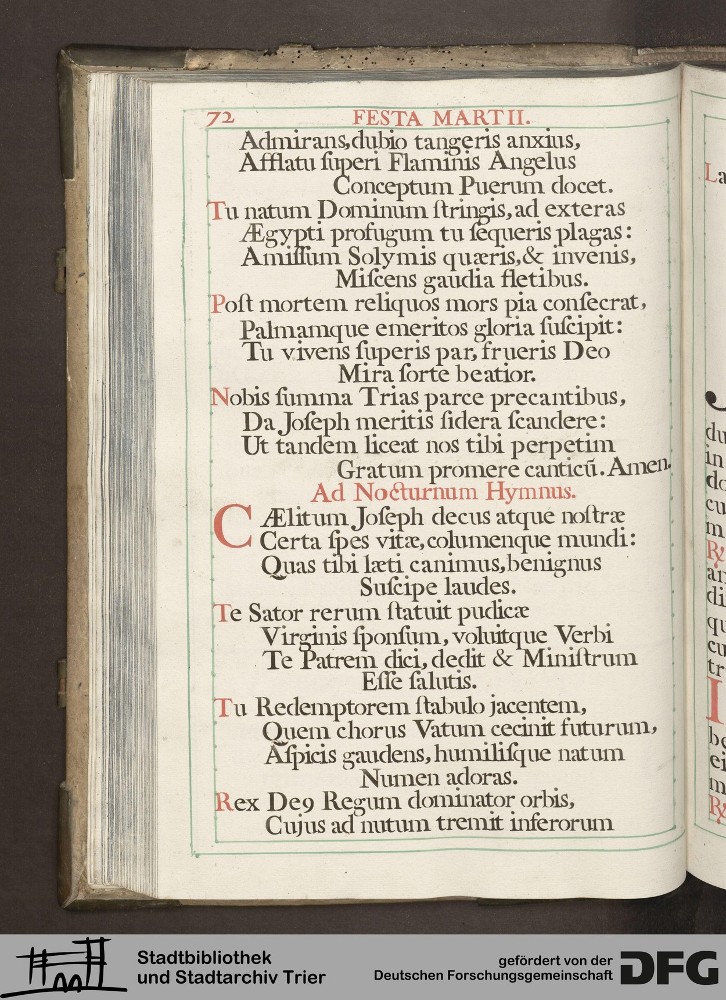 72 FESTA MARTII.
Admirans, dubio tangeris anxius,
Afflatu ſuperi Flaminis Angelus
Conceptum Puerum docet.
Tu natum Dominum ſtringis, ad exteras
Ægypti profugum tu ſequeris plagas:
Amiſſum Solymis quæris, & invenis,
Miſcens gaudia fletibus.
Poſt mortem reliquos mors pia conſecrat,
Palmamque emeritos gloria ſuſcipit:
Tu vivens ſuperis par, frueris Deo
Mira ſorte beatior.
Nobis ſumma Trias parce precantibus,
Da Joſeph meritis ſidera ſcandere:
Ut tandem liceat nos tibi perpetim
Gratum promere canticū. Amen.
Ad Nocturnum Hymnus.
CÆlitum Joſeph decus atque noſtræ
Certa ſpes vitæ, columenque mundi:
Quas tibi læti canimus, benignus
Suſcipe laudes.
Te Sator rerum ſtatuit pudicæ
Virginis ſponſum, voluitque Verbi
Te Patrem dici, dedit & Miniſtrum
Eſſe ſalutis.
Tu Redemptorem ſtabulo jacentem,
Quem chorus Vatum cecinit futurum,
Aſpicis gaudens, humiliſque natum
Numen adoras.
Rex Deꝰ Regum dominator orbis,
Cujus ad nutum tremit inferorum
La
du
in
do
cu
m
℟
an
di
qu
cu
tr
I
be
ei
m
℟
Stadtbibliothek
und Stadtarchiv Trier
gefördert von der
Deutschen Forschungsgemeinschaft
DFG